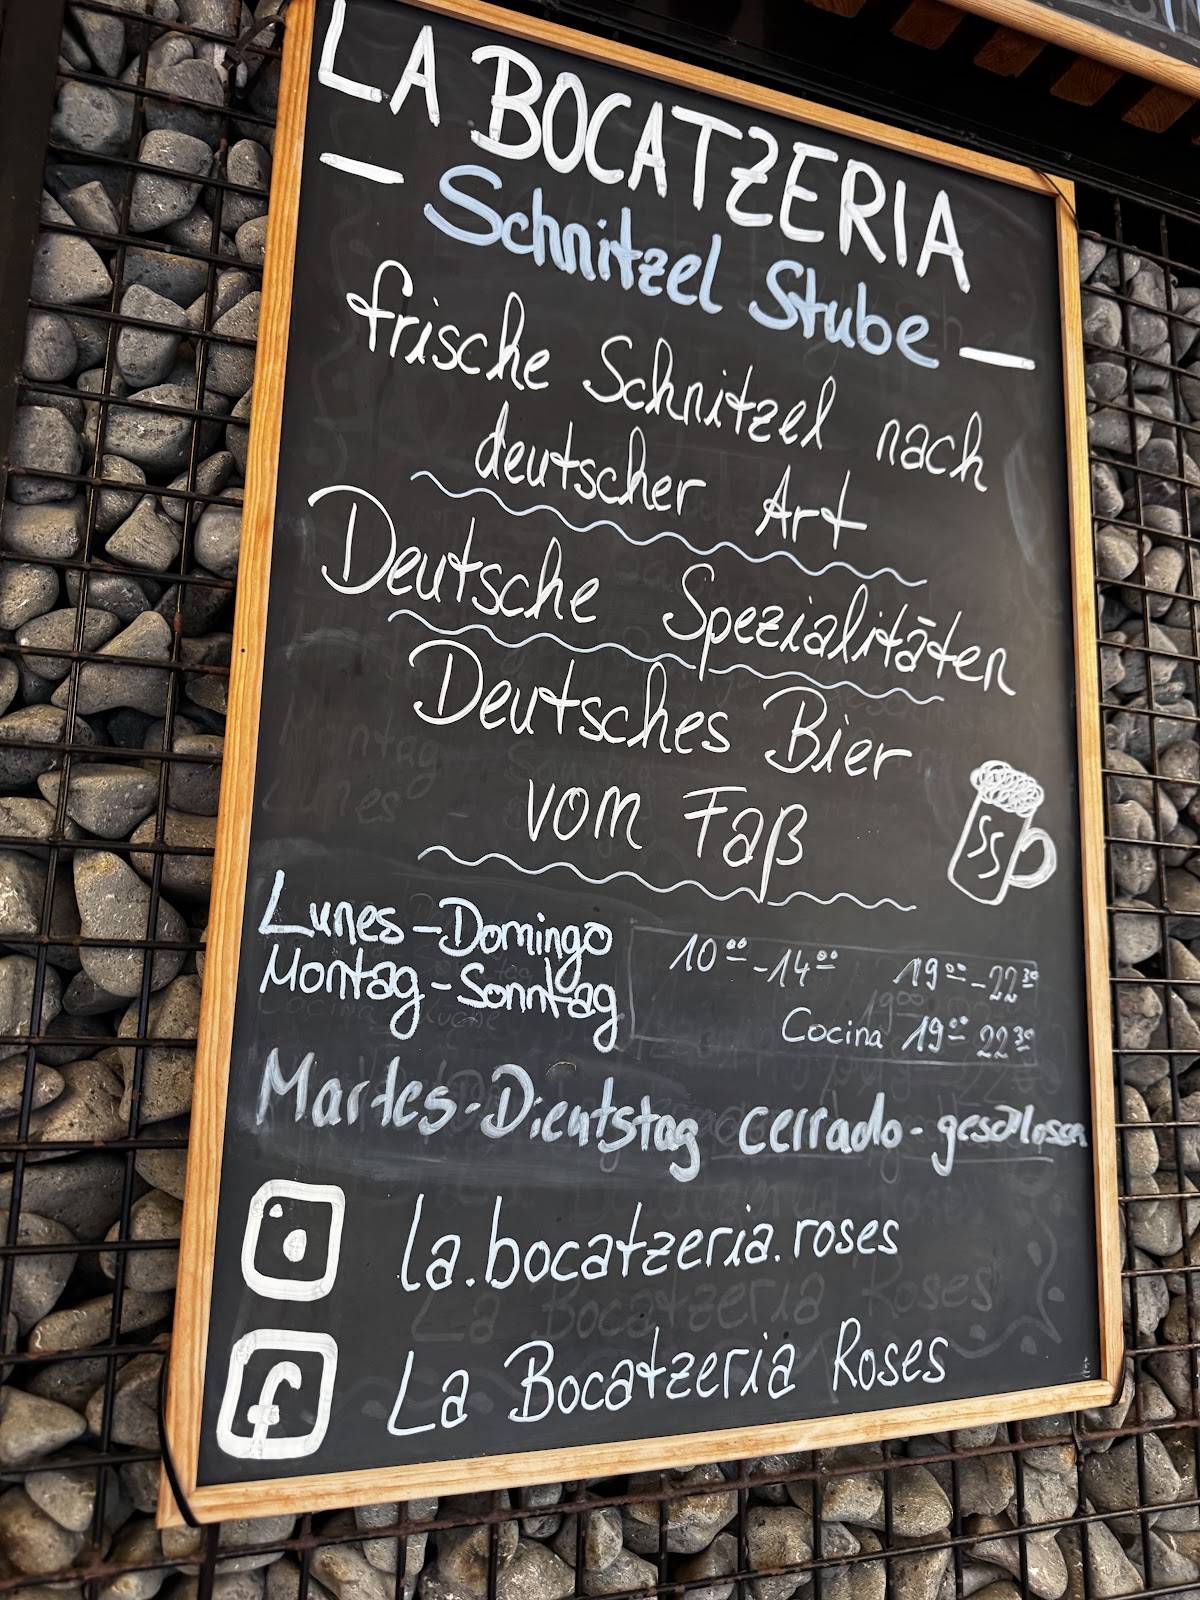 LA BOCATZERIA
— Schnitzel Stube —
frische Schnitzel nach
deutscher Art
Deutsche Spezialitäten
Deutsches Bier
vom Faß
Lunes - Domingo
Montag - Sonntag
10⁰⁰ - 14⁰⁰ 19⁰⁰ - 22³⁰
Cocina 19⁰⁰ 22³⁰
Martes - Dientstag cerrado - geschlossen
la.bocatzeria.roses
f La Bocatzeria Roses